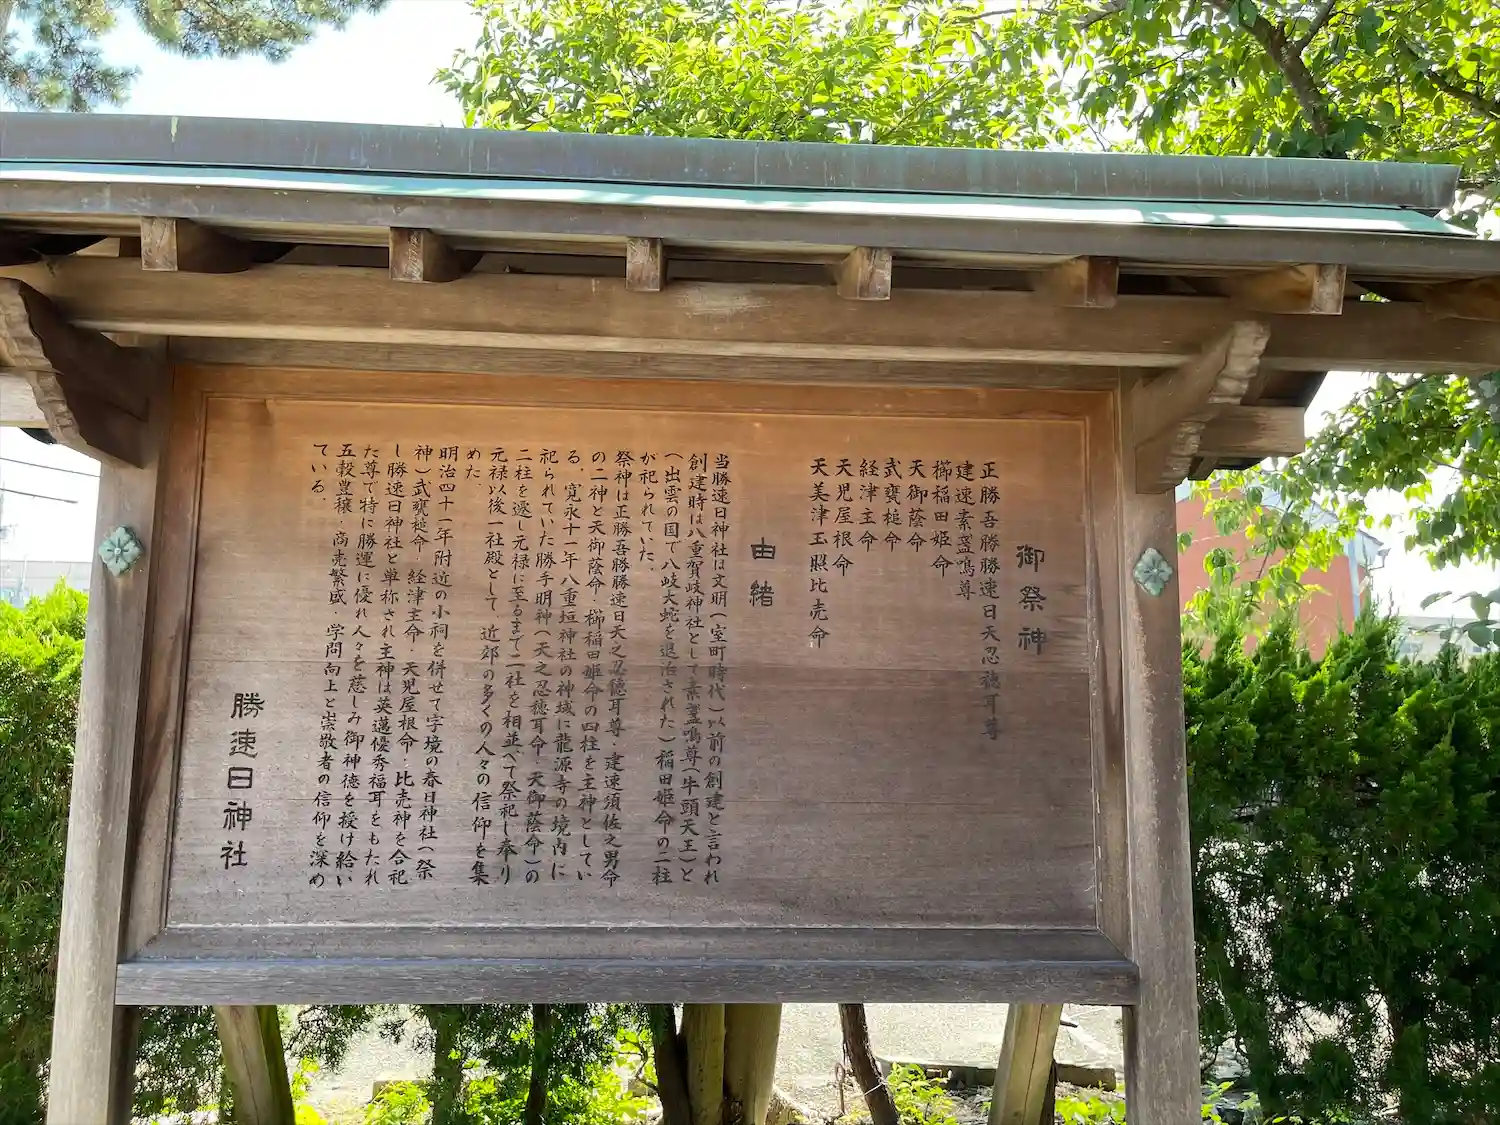 御祭神
正勝吾勝勝速日天忍穂耳尊
建速素盞鳴尊
櫛稲田姫命
天御蔭命
武甕槌命
経津主命
天児屋根命
天美津玉照比売命
由緒
当勝速日神社は文明(室町時代)以前の創建と言われ
創建時は八重賀岐神社として素盞鳴尊(牛頭天王)と
(出雲の国で八岐大蛇を退治された)稲田姫命の二柱
が祀られていた。
祭神は正勝吾勝勝速日天之忍穂耳尊・建速須佐之男命
の二神と天御蔭命・櫛稲田姫命の四柱を主神としてい
る。寛永十一年八重垣神社の神域に龍源寺の境内に
祀られていた勝手明神(天之忍穂耳命・天御蔭命)の
二柱を遷し元禄に至るまで二社を相並べて祭祀し奉り
元禄以後一社殿として、近郊の多くの人々の信仰を集
めた。
明治四十一年附近の小祠を併せて字境の春日神社(祭
神)武甕槌命・経津主命・天児屋根命・比売神を合祀
し勝速日神社と単称され主神は英邁優秀福耳をもたれ
た尊で特に勝運に優れ人々を慈しみ御神徳を授け給い
五穀豊穣・商売繁盛 学問向上と崇敬者の信仰を深め
ている。
勝速日神社